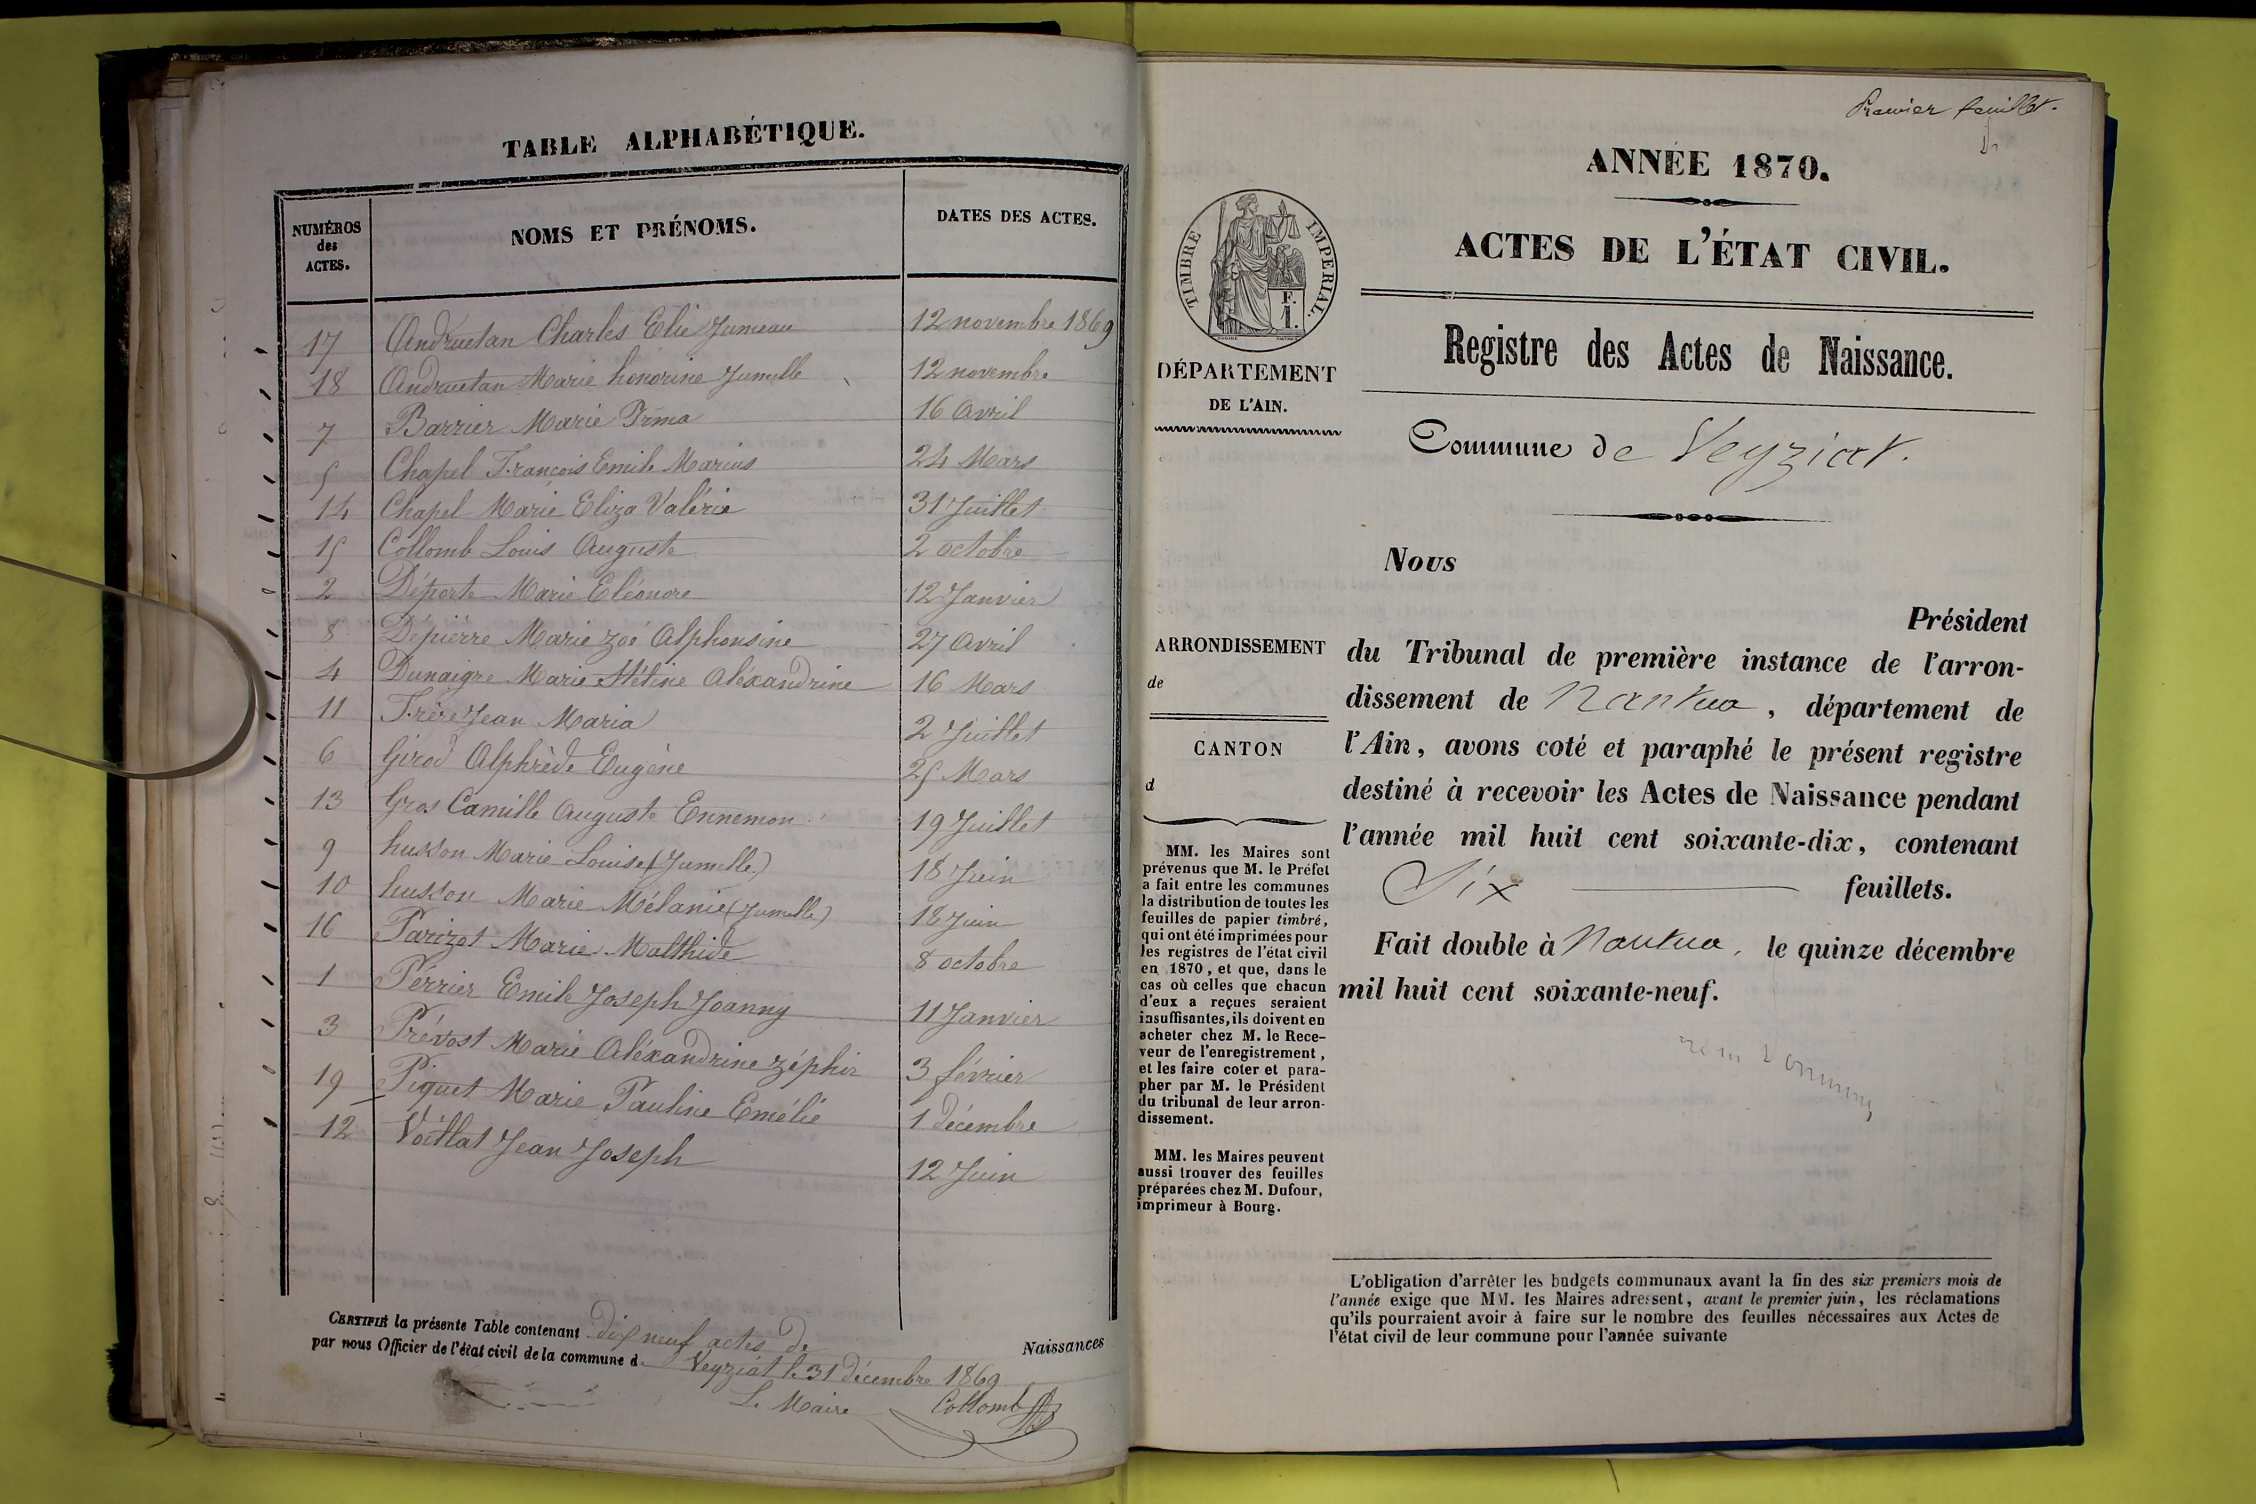 TABLE ALPHABÉTIQUE.
NUMÉROS des ACTES. NOMS ET PRÉNOMS. DATES DES ACTES.
17 Andruetan Charles Elie Jumeau 12 novembre 1869
18 Andruetan Marie honorine Jumelle 12 novembre
7 Barrier Marie Irma 16 Avril
5 Chapel François Emile Marius 24 Mars
14 Chapel Marie Eliza Valérie 31 Juillet
15 Collomb Louis Auguste 2 octobre
2 Déporte Marie Eléonore 12 Janvier
8 Dépierre Marie Zoé Alphonsine 27 Avril
4 Dunaigre Marie Aléxandrine 16 Mars
11 Frère Jean Maria 2 Juillet
6 Girod Alphrède Eugène 25 Mars
13 Gros Camille Auguste Ennemon 19 Juillet
9 husson Marie Louise (Jumelle) 18 Juin
10 husson Marie Mélanie (Jumelle) 18 Juin
16 Parizot Marie Malthide 8 octobre
1 Périer Emile Joseph Joanny 11 Janvier
3 Prévost Marie Aléxandrine Zéphir 3 février
19 Piquet Marie Pauline Emélie 1 décembre
12 Voillat Jean Joseph 12 Juin
CERTIFIÉ la présente Table contenant dix neuf actes de Naissances
par nous Officier de l'état civil de la commune d Veyziat le 31 décembre 1869
Le Maire Collomb
Premier feuillet.
ANNÉE 1870.
ACTES DE L'ÉTAT CIVIL.
TIMBRE IMPÉRIAL.
F.
1.
Registre des Actes de Naissance.
DÉPARTEMENT
DE L'AIN.
Commune de Veyziat.
Nous
Président
du Tribunal de première instance de l'arron-
dissement de Nantua, département de
l'Ain, avons coté et paraphé le présent registre
destiné à recevoir les Actes de Naissance pendant
l'année mil huit cent soixante-dix, contenant
Six feuillets.
Fait double à Nantua, le quinze décembre
mil huit cent soixante-neuf.
ARRONDISSEMENT
de
CANTON
d
MM. les Maires sont
prévenus que M. le Préfet
a fait entre les communes
la distribution de toutes les
feuilles de papier timbré,
qui ont été imprimées pour
les registres de l'état civil
en 1870, et que, dans le
cas où celles que chacun
d'eux a reçues seraient
insuffisantes, ils doivent en
acheter chez M. le Rece-
veur de l'enregistrement,
et les faire coter et para-
pher par M. le Président
du tribunal de leur arron-
dissement.
MM. les Maires peuvent
aussi trouver des feuilles
préparées chez M. Dufour,
imprimeur à Bourg.
L'obligation d'arrêter les budgets communaux avant la fin des six premiers mois de
l'année exige que MM. les Maires adressent, avant le premier juin, les réclamations
qu'ils pourraient avoir à faire sur le nombre des feuilles nécessaires aux Actes de
l'état civil de leur commune pour l'année suivante